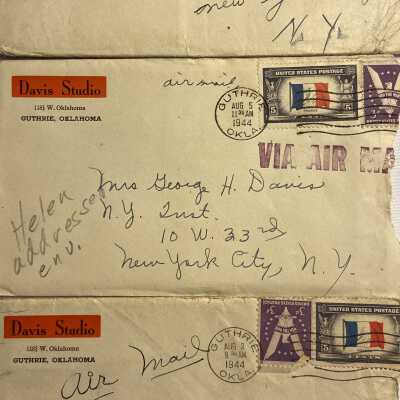 new y
N.Y.
Davis Studio
W. Oklahoma
GUTHRIE, OKLAHOMA
air mail
GUTHRIE
AUG 5
AM
1944
OKLA.
UNITED STATES POSTAGE
5
5
VIA AIR MA
Mrs George H. Davis
N.Y. Inst.
10 W. 33rd
New York City, N.Y.
Helen
addressed
env.
Davis Studio
W. Oklahoma
GUTHRIE, OKLAHOMA
Air Mail
GUTHRIE
AUG 2
AM
1944
OKLA.
UNITED STATES POSTAGE
5